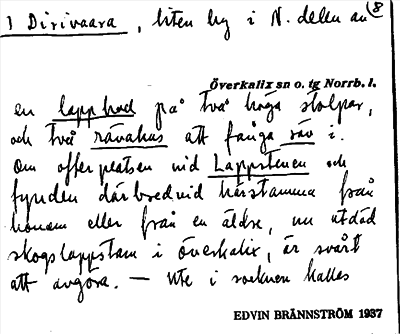 I Dirivaara, liten by i N. delen av
8
Överkalix sn o. tg Norrb. l.
en lappbod på två höga stolpar,
och två rävahus att fånga räv i.
Om offerplatsen vid Lappstenen och
fynden därbredvid härstamma från
honom eller från en äldre, nu utdöd
skogslappstam i Överkalix, är svårt
att avgöra. — Ute i socknen kallas
EDVIN BRÄNNSTRÖM 1937